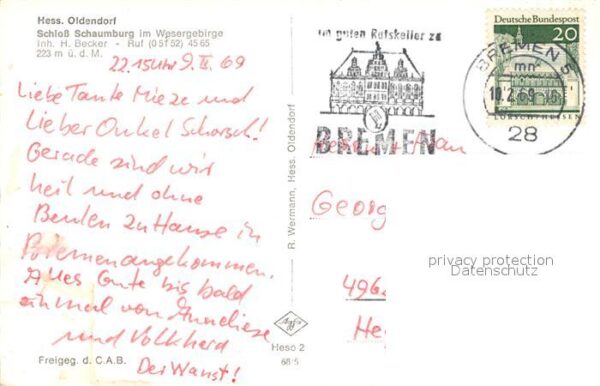 Hess. Oldendorf
Schloß Schaumburg im Wesergebirge
Inh. H. Becker - Ruf (0 51 52) 45 65
223 m ü. d. M.
22.15 Uhr 9.II.69
Liebe Tante Mieze und
Lieber Onkel Schorsch!
Gerade sind wir
heil und ohne
Beulen zu Hause in
Bremen angekommen.
Alles Gute bis bald
einmal von Anneliese
und Volkhard
Der Wanst!
Freigeg. d. C.A.B.
R. Wermann, Hess. Oldendorf
Agfa
Heso 2
68/5
im guten Ratskeller zu
BREMEN
BREMEN 5
mn
10.2.69
28
Deutsche Bundespost
20
LORSCH/HESSEN
Georg
496
He
privacy protection
Datenschutz